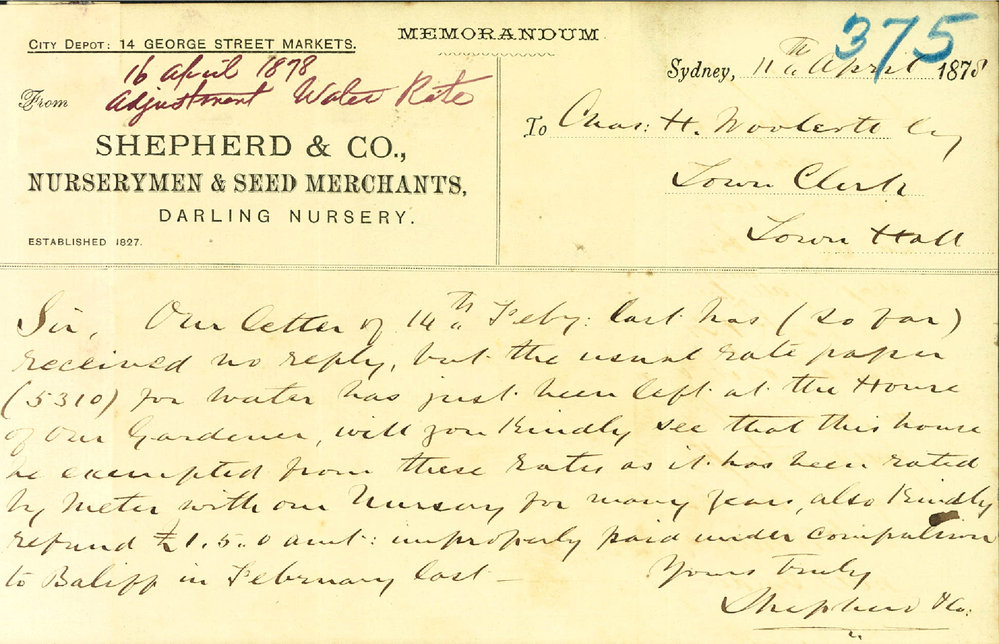 MEMORANDUM
375
CITY DEPOT: 14 GEORGE STREET MARKETS.
16 April 1878
From Adjustment Water Rate
SHEPHERD & CO.,
NURSERYMEN & SEED MERCHANTS,
DARLING NURSERY.
ESTABLISHED 1827.
Sydney, 11th April 1878
To Chas: H. Woolcott Esq
Town Clerk
Town Hall
Sir, Our letter of 14th Feby: last has (so far)
received no reply, but the usual rate paper
(5310) for water has just been left at the House
of our Gardener, will you Kindly see that this house
be exempted from these rates as it has been rated
by Meter with our Nursery for many years, also Kindly
refund £1.5.0 amt: improperly paid under compulsion
to Baliff in February last –
Yours truly
Shepherd & Co: